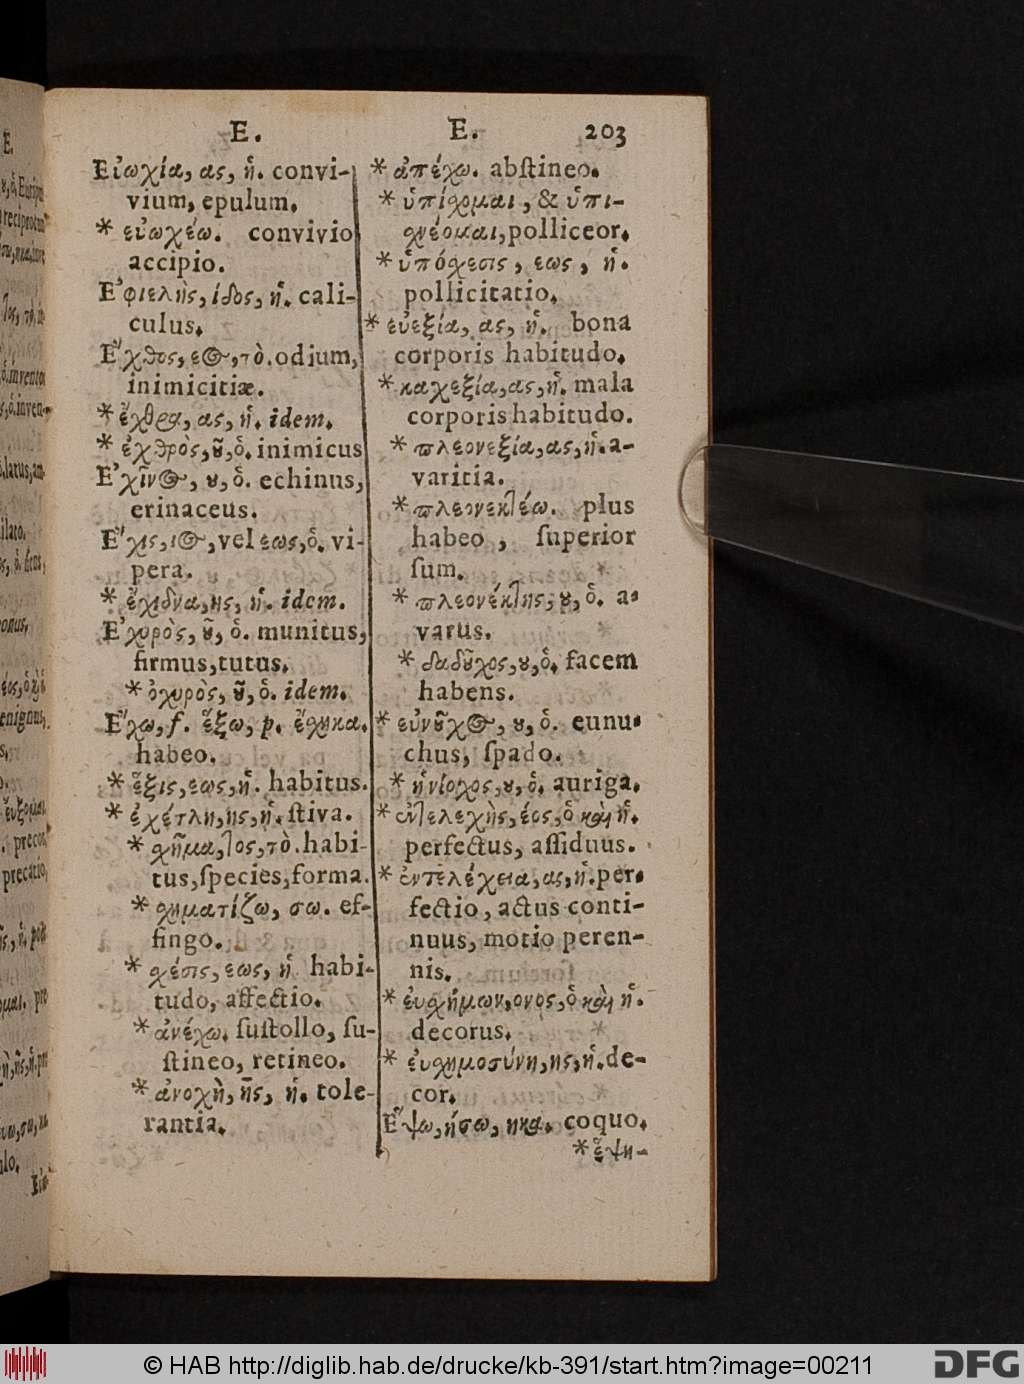 E. E. 203
Εὐωχία, ας, ἡ. convi-
vium, epulum.
* εὐωχέω. convivio
accipio.
Ἐφιελὴς, ίδος, ἡ. cali-
culus.
Ἔχθος, εος, τὸ. odium,
inimicitiæ.
* ἔχθρα, ας, ἡ. idem.
* ἐχθρὸς, ȣ͂, ὁ. inimicus
Ἐχῖνος, ȣ, ὁ. echinus,
erinaceus.
Ἔχις, ιος, vel εως, ὁ. vi-
pera.
* ἔχιδνα, ης, ἡ. idem.
Ἐχυρὸς, ȣ͂, ὁ. munitus,
firmus, tutus.
* ὀχυρὸς, ȣ͂, ὁ. idem.
Ἔχω, f. ἕξω, p. ἔσχηκα.
habeo.
* ἕξις, εως, ἡ. habitus.
* ἐχέτλη, ης, ἡ. ſtiva.
* σχῆμα, τος, τὸ. habi-
tus, ſpecies, forma.
* σχηματίζω, σω. ef-
fingo.
* σχέσις, εως, ἡ habi-
tudo, affectio.
* ἀνέχω. ſuſtollo, ſu-
ſtineo, retineo.
* ἀνοχὴ, ῆς, ἡ. tole-
rantia.
* ἀπέχω. abſtineo.
* ὑπίσχομαι, & ὑπι-
σχνέομαι, polliceor.
* ὑπόσχεσις, εως, ἡ.
pollicitatio.
* εὐεξία, ας, ἡ. bona
corporis habitudo.
* καχεξία, ας, ἡ. mala
corporis habitudo.
* πλεονεξία, ας, ἡ. a-
varitia.
* πλεονεκτέω. plus
habeo, ſuperior
ſum.
* πλεονέκτης, ȣ, ὁ. a-
varus.
* δαδȣ͂χος, ȣ, ὁ. facem
habens.
* εὐνȣ͂χος, ȣ, ὁ. eunu-
chus, ſpado.
* ἡνίοχος, ȣ, ὁ. auriga.
* ἐντελεχὴς, έος, ὁ καὶ ἡ.
perfectus, aſſiduus.
* ἐντελέχεια, ας, ἡ. per-
fectio, actus conti-
nuus, motio peren-
nis.
* εὐσχήμων, ονος, ὁ καὶ ἡ.
decorus.
* εὐσχημοσύνη, ης, ἡ. de-
cor.
Ἕψω, ήσω, ηκα. coquo.
* ἕψη-
© HAB http://diglib.hab.de/drucke/kb-391/start.htm?image=00211
DFG